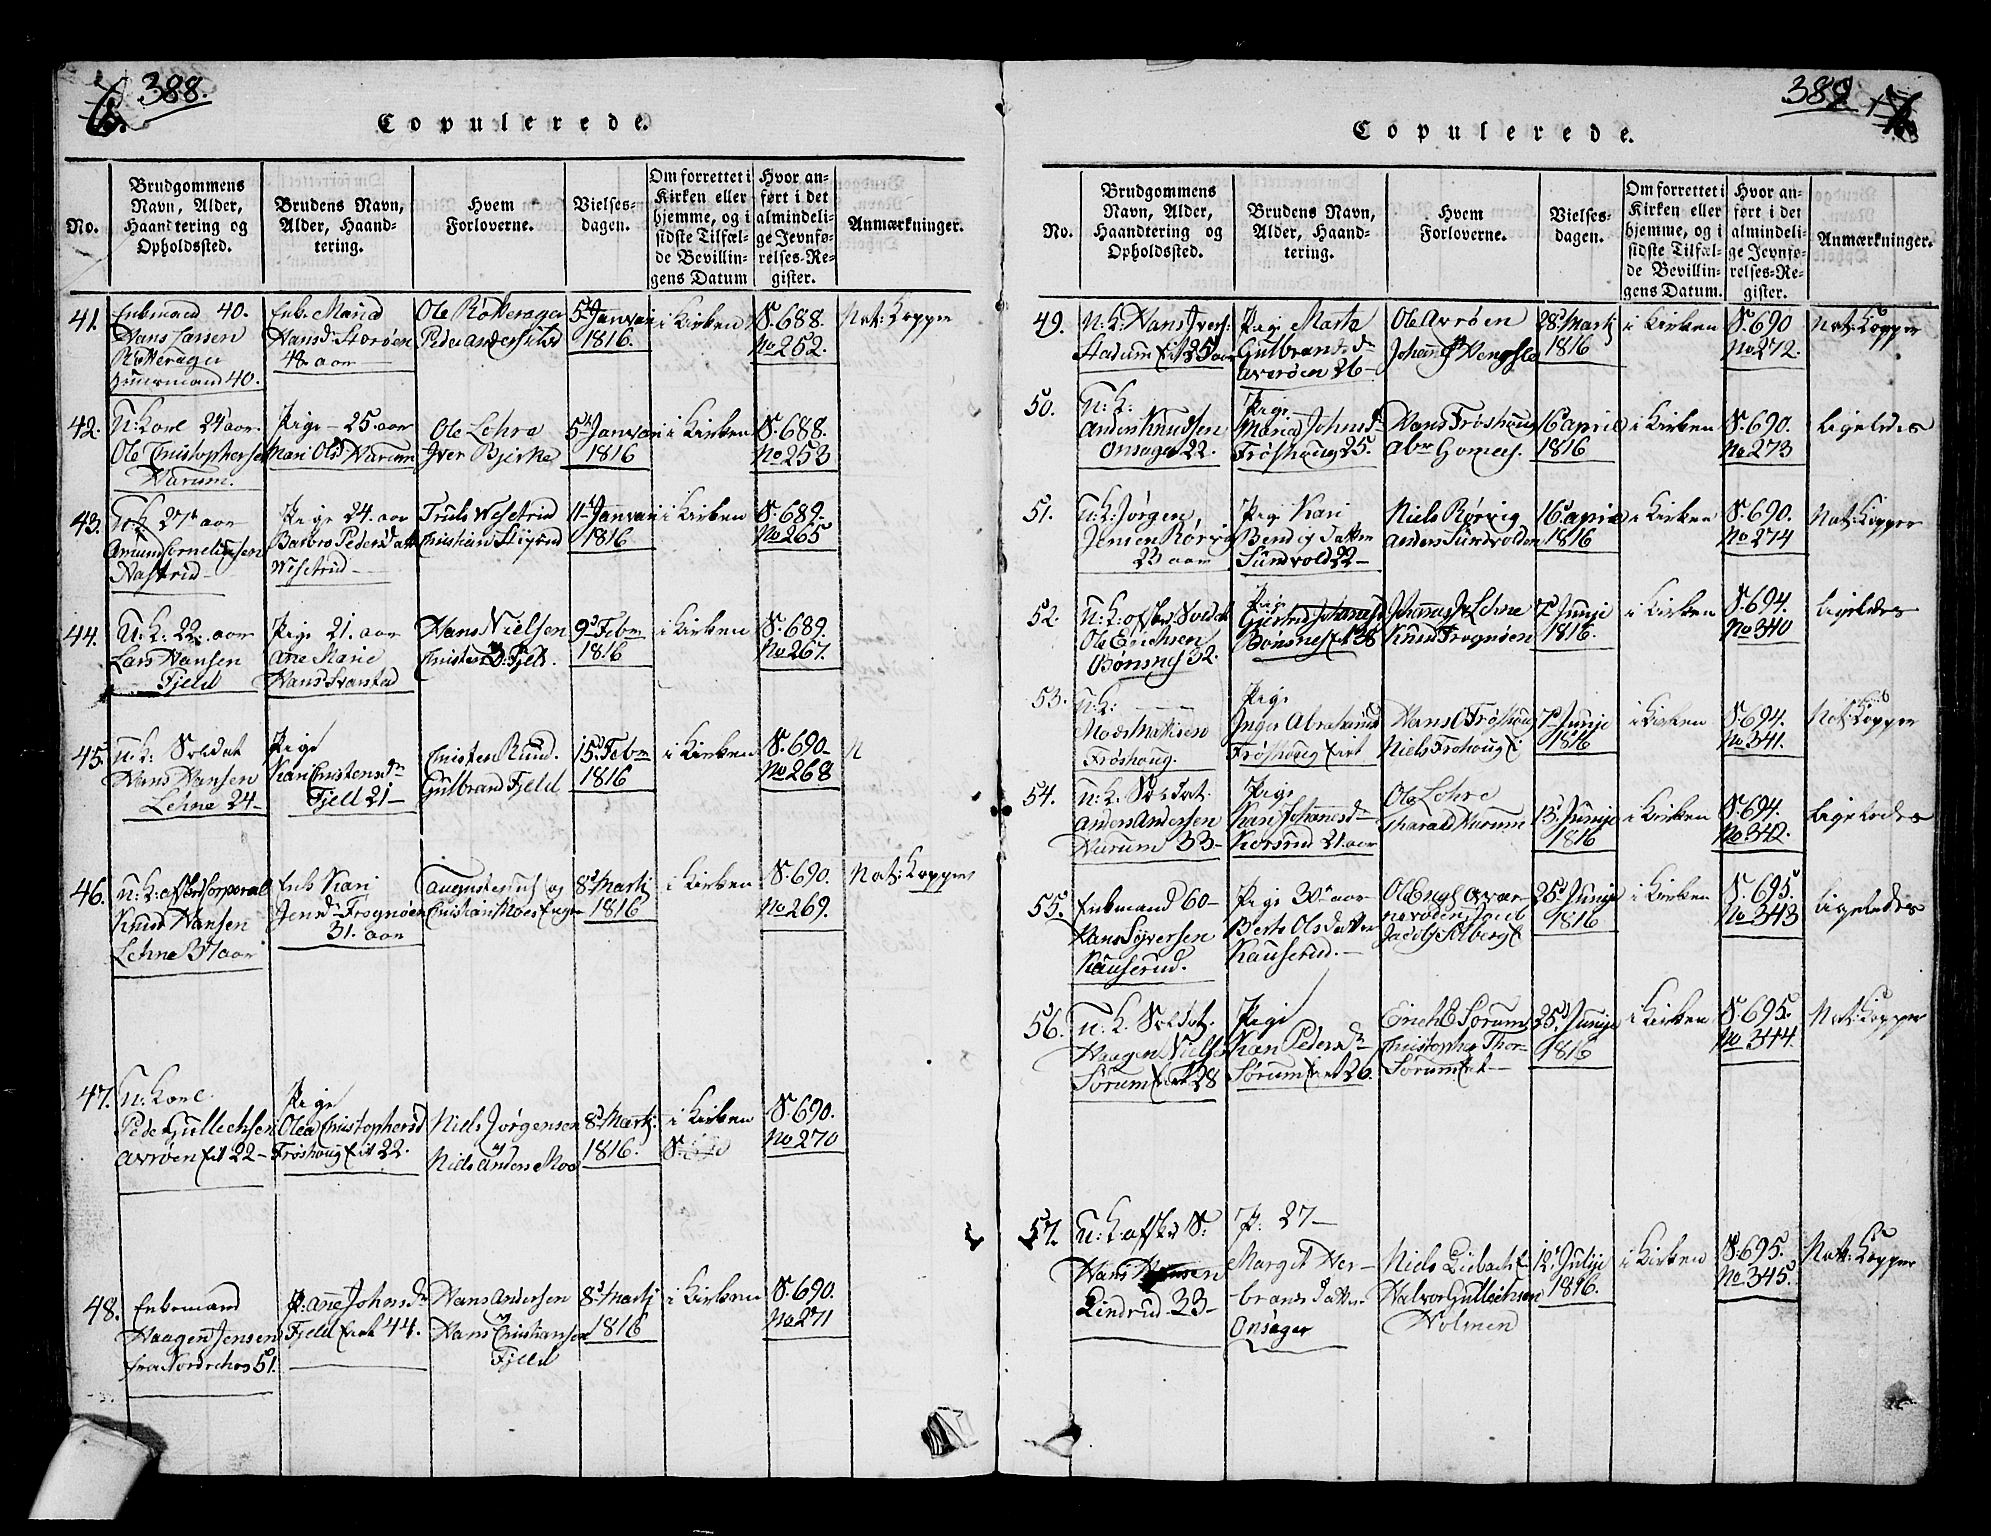 388.
Copulerede.
No.
Brudgommens
Navn, Alder,
Haandtering og
Opholdssted.
Brudens Navn,
Alder, Haand-
tering.
Hvem
Forloverne.
Vielses-
dagen.
Om forrettet i
Kirken eller
hjemme, og i
sidste Tilfæl-
de Bevillin-
gens Datum
Hvor an-
ført i det
almindeli-
ge Jevnfø-
relses-Re-
gister.
Anmærkninger.
41.
Enkemand 40.
Hans Larsen
Enk. Maria
Hansd Storøen
48 aar
Ole
Peder Anders
5 Januari
1816.
i Kirken
S. 688.
No 252.
Nat: Kopper
42.
U: Karl 24 aar.
Ole Christophersen
Harum.
Pige – 25 aar
Mari Olsd Harum
Ole Lehne
Iver Bjerke
5 Januari
1816
i Kirken
S. 688.
No 253
43.
27 aar
Pige 24. aar
Barbro Pedersdatter
Truls
Christian
11 Januari
1816
i Kirken
S. 689.
No 265
44.
U: K: 22. aar
Lars Hansen
Fjeld
Pige 21. aar
Ane Marie
Hansd
Hans Nielsen
Christen D: Fjeld.
9 Febr
1816
i Kirken
S: 689.
No 267.
45.
U: K: Soldat
Hans Hansen
Lehne 24 –
Pige
Kari Christensdr
Fjeld 21 –
Christen Rund.
Gulbrand Fjeld
15 Febr
1816
i Kirken
S. 690–
No 268
N
46.
U: K: afsked Corporal
Knud Hansen
Lehne 37 aar
Enk Kari
Jensdr Frognøen
31. aar
og
Christian Moe
8 Martj
1816
i Kirken
S. 690.
No 269.
Nat: Kopper
47.
U: Karl
Peder Gullechsen
Averøen 22 –
Pige
Olea Christophersd
Frøshoug 22.
Niels Jørgensen
Niels Anders Moe
8 Martj
1816.
i Kirken
S. 690.
No 270
48.
Enkemand
Haagen Jensen
fra Norderhov 51.
P: Anne Johansdr
Fjeld 44.
Hans Andersen
Hans Christiansen
Fjeld
8 Martj
1816
i Kirken
S. 690.
No 271
389
Copulerede.
No.
Brudgommens
Navn, Alder,
Haandtering og
Opholdssted.
Brudens Navn,
Alder, Haand-
tering.
Hvem
Forloverne.
Vielses-
dagen.
Om forrettet i
Kirken eller
hjemme, og i
sidste Tilfæl-
de Bevillin-
gens Datum.
Hvor an-
ført i det
almindeli-
ge Jevnfø-
relses-Re-
gister.
Anmærkninger.
49.
U: K: Hans Ivers:
Stadum 25 aar
Pige Marta
Gulbrandsdr
Averøen 26 –
Ole Averøen
28 Martj
1816
i Kirken
S. 690
No. 272.
Nat: Kopper
50.
U: K:
Anders Knudsen
Onsager 22.
Pige
Maria Johnsdr
Frøshoug 25.
Hans Frøshoug
16 April
1816
i Kirken
S. 690.
No 273
ligeledes
51.
U: K: Jørgen
Jensen Rørvig
23 aar
Pige Kari
Sundvold 22 –
Niels Rørvig
Anders Sundvolden
16 April
1816
i Kirken
S. 690.
No 274
Nat: Kopper
52.
U: K: afsked Soldat
Ole Erichsen
Bønsnes 32.
Pige
Bønsnes 28
Johannes Lehne
Knud Frognøen
7 Junij
1816.
i Kirken
S. 694.
No 340
ligeledes
53.
U: K:
Frøshoug.
Pige
Inger Abrahamsd
Frøshoug
Hans Frøshoug
Niels Frøhoug
7 Junij
1816
i Kirken
S. 694.
No 341.
Nat: Kopper
54.
U: K. Soldat.
Anders Andersen
Harum 33 –
Pige
Kari Johannesdr
21. aar
Ole Lehne
Tharald Harum
13 Junij
1816
i Kirken
S. 694.
No 342.
ligeledes
55.
Enkemand 60 –
Hans Syversen
Kauserud.
Pige 30 aar
Berte Olsdatter
Kauserud. –
25 Junij
1816
i Kirken
S. 695.
No 343
ligeledes
56.
U: K. Soldat.
Haagen Niels
Sørum 28
Pige
Kari Pedersdr
Sørum 26.
Erich E Sørum
Christopher Thor–
Sørum
25 Junij
1816
i Kirken
S. 695.
No 344.
Nat: Kopper
57.
U: K afsked S:
Hans Hansen
Lindrud 33 –
P: 27 –
Margit Her–
bransdatter
Onsager
Niels
Halvor Gullichsen
Holmen
12 Julij
1816.
i Kirken
S. 695.
No 345.
Nat: Kopper